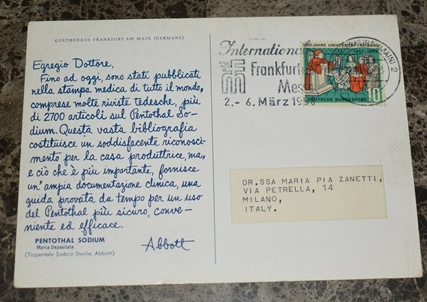 GOETHEHAUS FRANKFURT AM MAIN (GERMANY)
Egregio Dottore,
Fino ad oggi, sono stati pubblicati
nella stampa medica di tutto il mondo,
comprese molte riviste tedesche, più
di 2700 articoli sul Pentothal So-
dium. Questa vasta bibliografia
costituisce un soddisfacente riconosci-
mento per la casa produttrice, ma,
e ciò che è più importante, fornisce
un'ampia documentazione clinica, una
guida provata da tempo per un uso
del Pentothal più sicuro, conve-
niente ed efficace.
Abbott
PENTOTHAL SODIUM
Marca Depositata
(Tiopentale Sodico Sterile, Abbott)
Internationale
Frankfurter
Messe
2.-6. März 19
500 JAHRE UNIVERSITÄT FREIBURG
DEUTSCHE BUNDESPOST
10
DR.SSA MARIA PIA ZANETTI,
VIA PETRELLA, 14
MILANO,
ITALY.